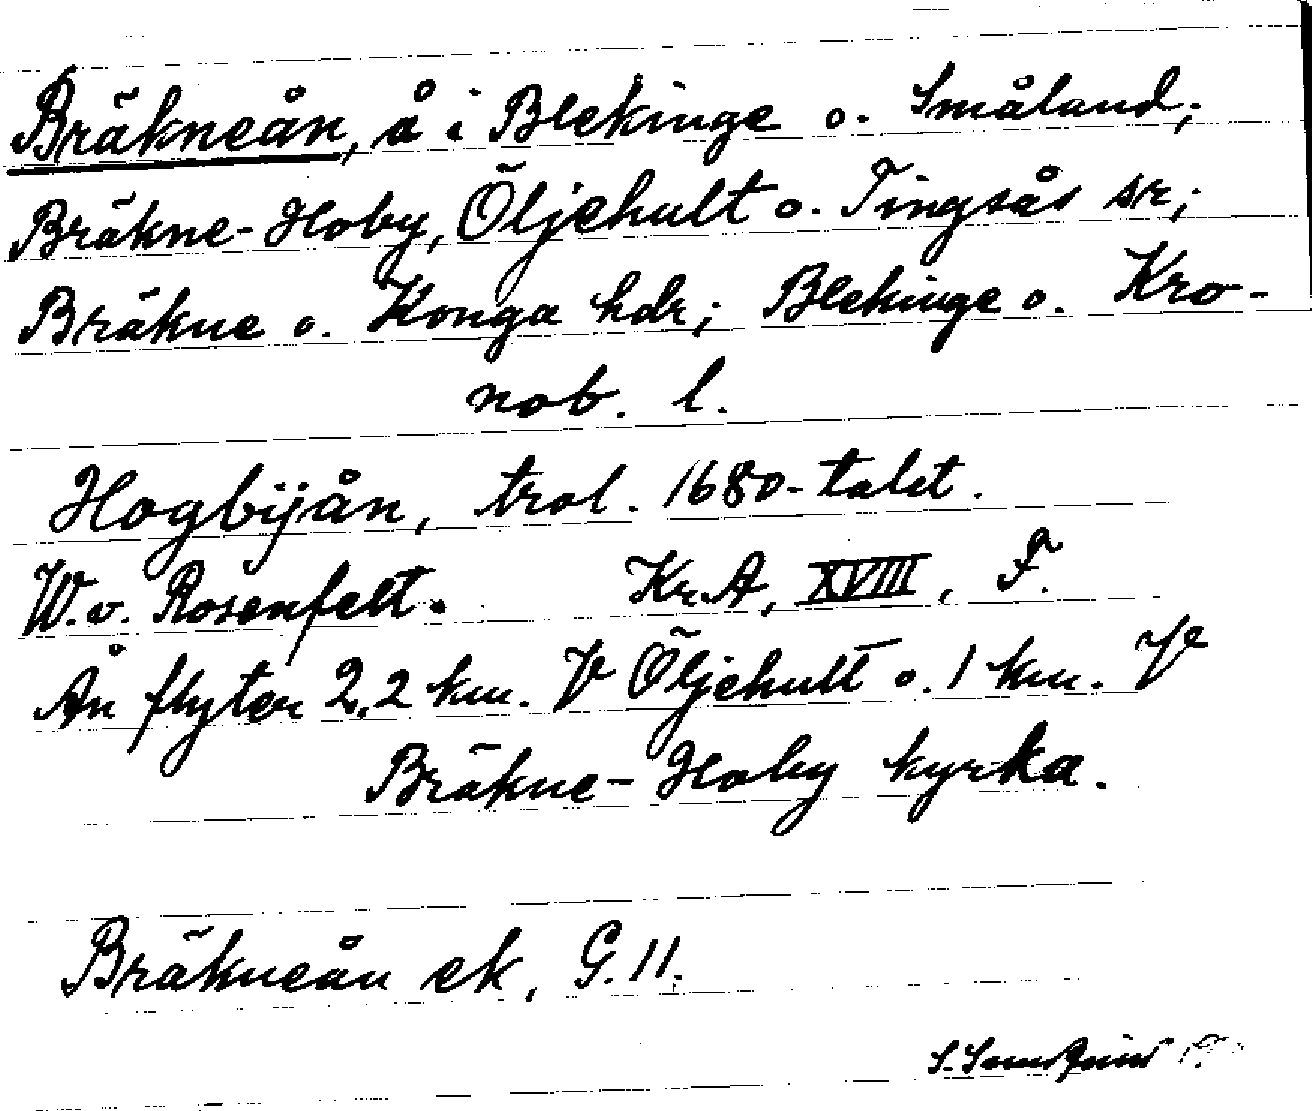 Bräkneån, å i Blekinge o. Småland;
Bräkne-Hoby, Öljehult o. Tingsås sr;
Bräkne o. Konga hdr; Blekinge o. Kro-
nob. l.
Hogbijån, trol. 1680-talet.
W. v. Rosenfelt. Kr.A, XVIII, F.
Ån flyter 2,2 km. V Öljehult o. 1 km. V
Bräkne-Hoby kyrka.
Bräkneån ek. G. 11.
S.